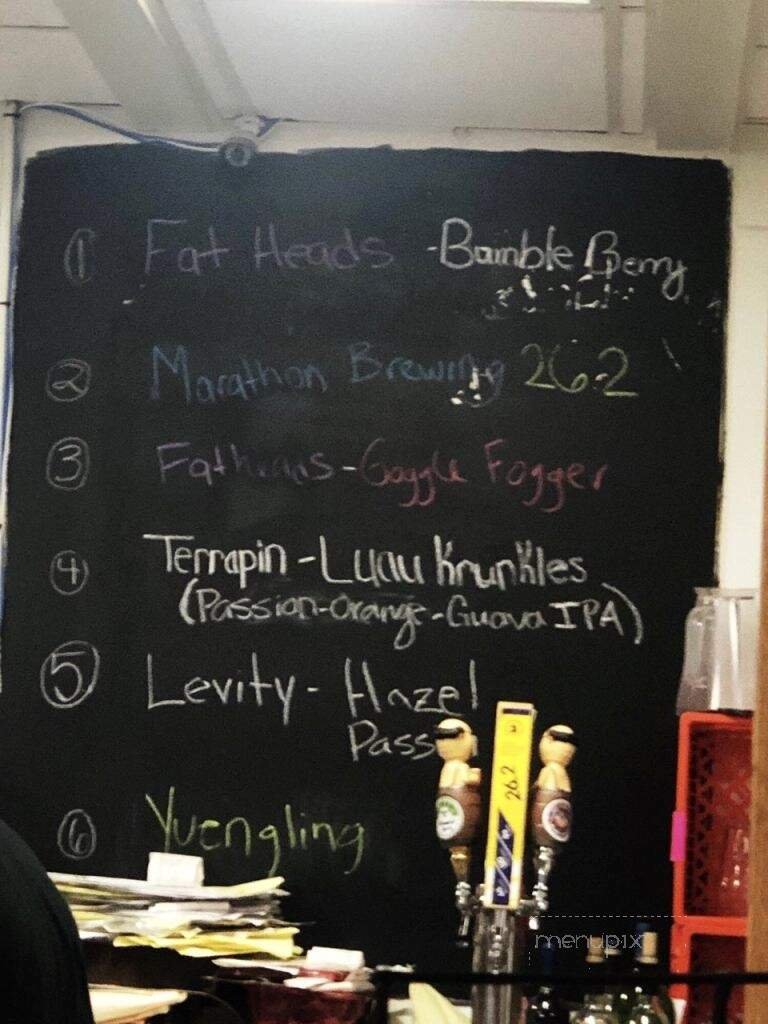 ① Fat Heads - Bumble Berry
② Marathon Brewing 26.2
③ Fatheads - Goggle Fogger
④ Terrapin - Luau Krunkles
(Passion-Orange-Guava IPA)
⑤ Levity - Hazel
⑥ Yuengling
26.2
menupix